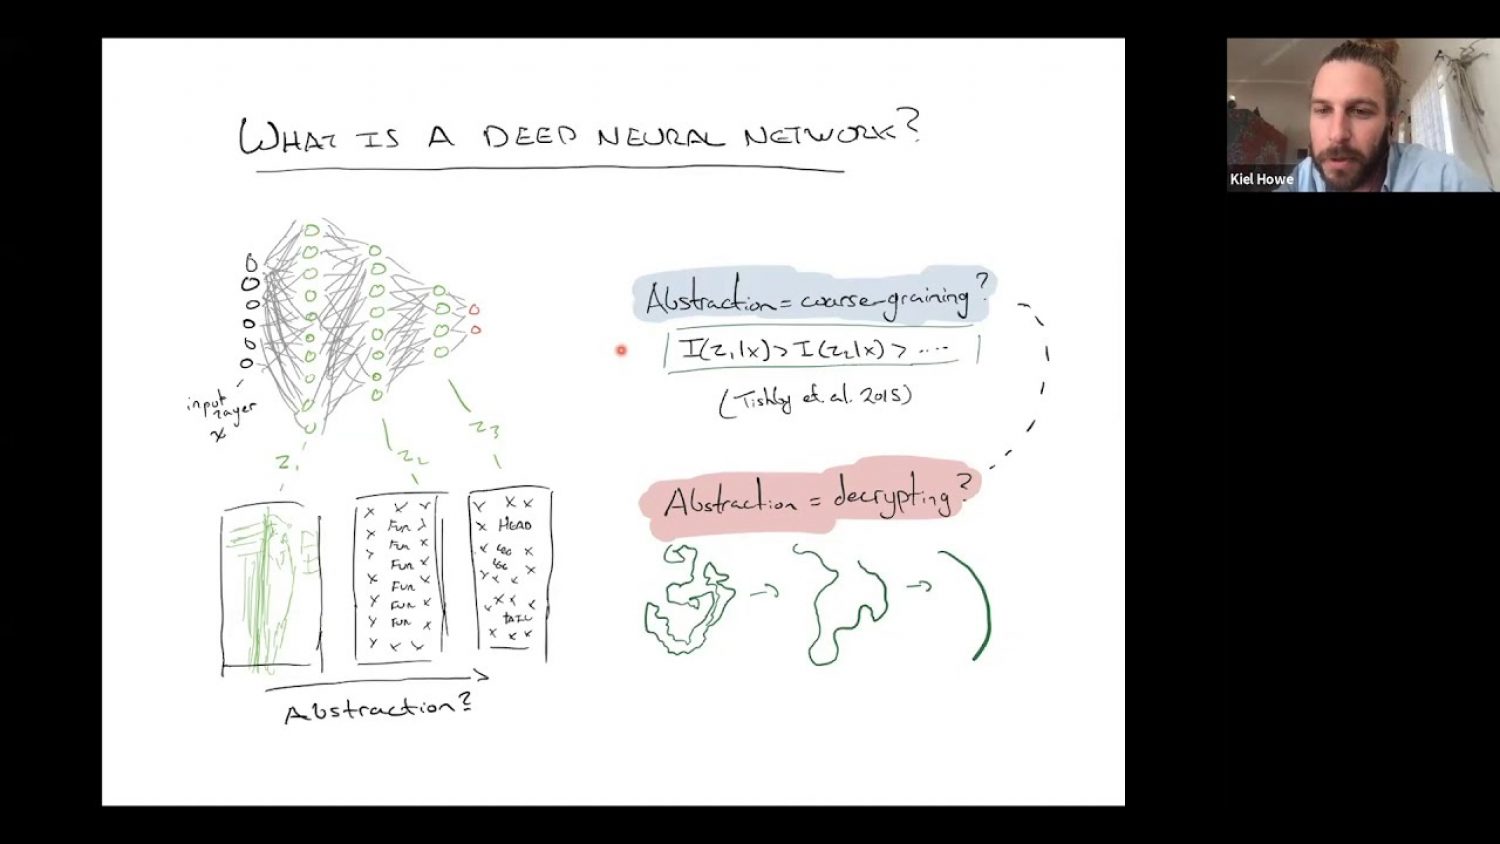 WHAT IS A DEEP NEURAL NETWORK?
Kiel Howe
input
layer
x
z1
z2
z3
x x x
Fur x
Fur x
Fur x
Fur x
Fur x
Fur x
x x x
x x x
x HEAD
x LEG x
LEG x
x x x
x x x
TAIL
x x x
Abstraction?
Abstraction = coarse-graining?
I(z1|x) > I(z2|x) > ....
(Tishby et. al. 2015)
Abstraction = decrypting?